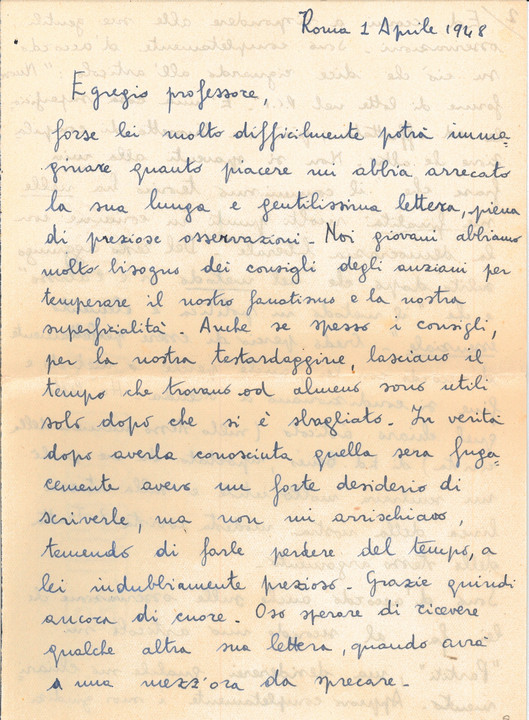 Roma 1 Aprile 1948
Egregio professore,
forse lei molto difficilmente potrà imma-
ginare quanto piacere mi abbia arrecato
la sua lunga e gentilissima lettera, piena
di preziose osservazioni - Noi giovani abbiamo
molto bisogno dei consigli degli anziani per
temperare il nostro fanatismo e la nostra
superficialità - Anche se spesso i consigli,
per la nostra testardaggine, lasciano il
tempo che trovano od almeno sono utili
solo dopo che si è sbagliato - In verità
dopo averla conosciuta quella sera fuga-
cemente avevo un forte desiderio di
scriverle, ma non mi arrischiavo,
temendo di farle perdere del tempo, a
lei indubbiamente prezioso - Grazie quindi
ancora di cuore - Oso sperare di ricevere
qualche altra sua lettera, quando avrà
una mezz'ora da sprecare -